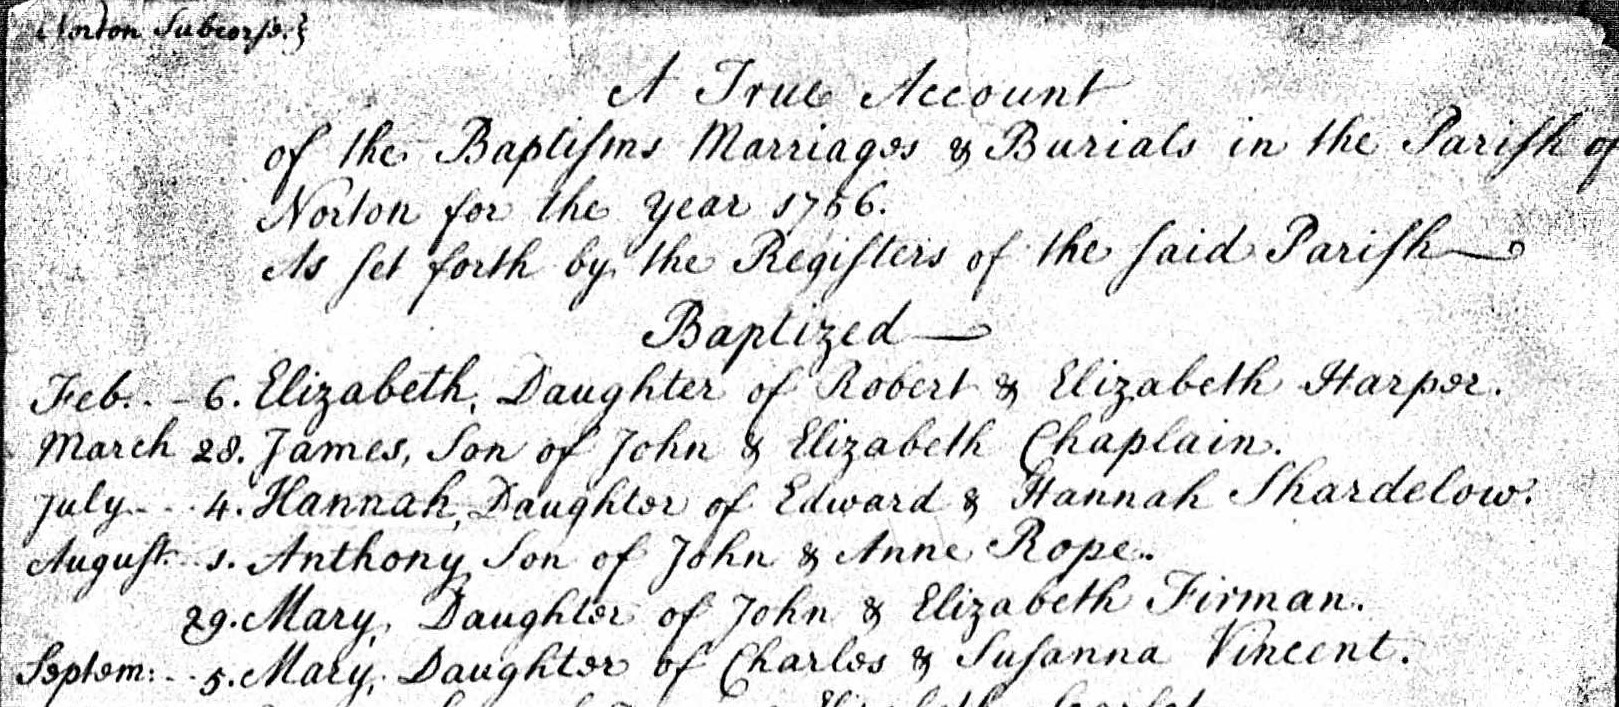 Norton Subcorſe.}
A True Account
of the Baptiſms Marriages & Burials in the Pariſh of
Norton for the Year 1756.
As ſet forth by the Regiſters of the ſaid Pariſh
Baptized
Feb. - - 6. Elizabeth, Daughter of Robert & Elizabeth Harper.
March 28. James, Son of John & Elizabeth Chaplain.
July - - - 4. Hannah, Daughter of Edward & Hannah Shardelow.
Auguſt - - 1. Anthony Son of John & Anne Rope.
29. Mary, Daughter of John & Elizabeth Firman.
Septem: - - 5. Mary, Daughter of Charles & Suſanna Vincent.
Elizabeth